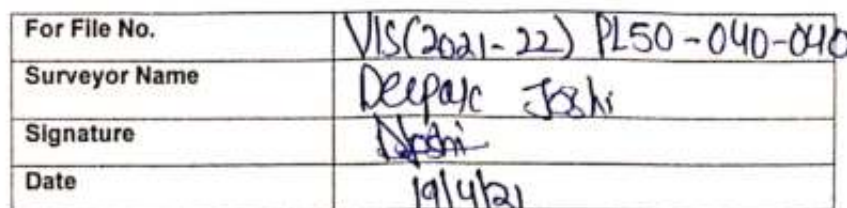 For File No. VIS(2021-22) PL50-040-040
Surveyor Name Deepak Joshi
Signature DJoshi
Date 19/4/21